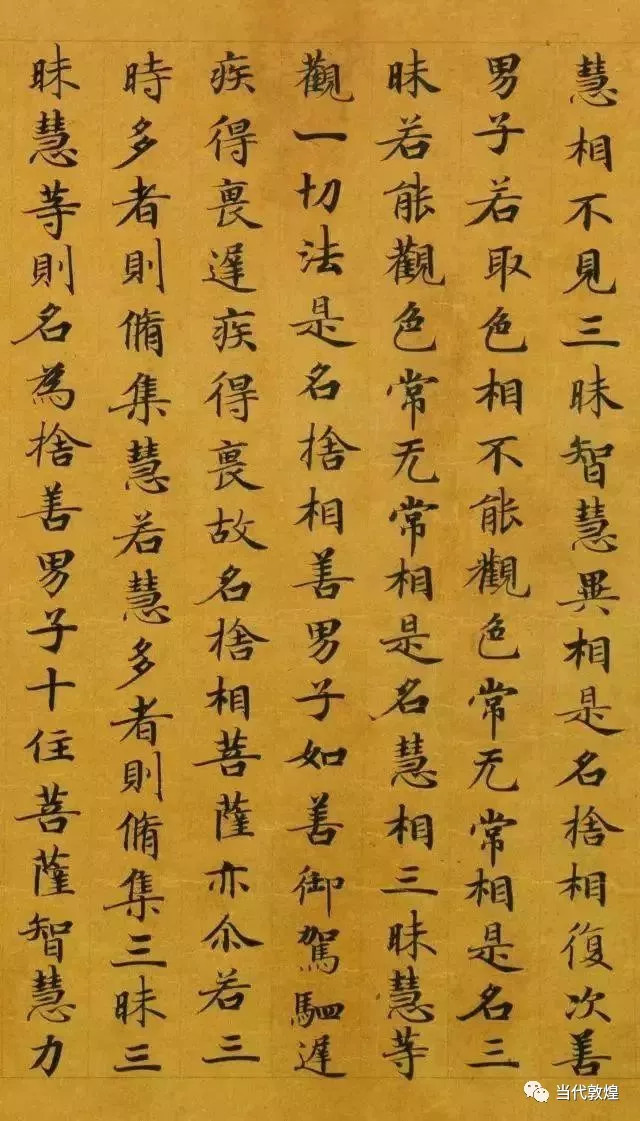 慧相不見三昧智慧異相是名捨相復次善
男子若取色相不能觀色常无常相是名三
昧若能觀色常无常相是名慧相三昧慧等
觀一切法是名捨相善男子如善御駕駟遲
疾得㽵遲疾得㽵故名捨相菩薩亦尒若三
時多者則脩集慧若慧多者則脩集三昧三
昧慧等則名為捨善男子十住菩薩智慧力
当代敦煌